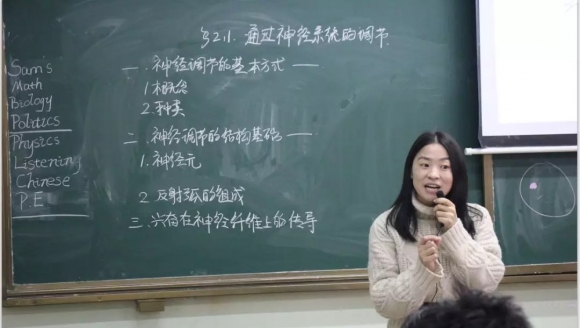 Sam's
Math
Biology
Politics
Physics
Listening
Chinese
P.E
§2.1. 通过神经系统的调节
一.神经调节的基本方式——
1.概念
2.种类
二.神经调节的结构基础——
1.神经元
2.反射弧的组成
三.兴奋在神经纤维上的传导